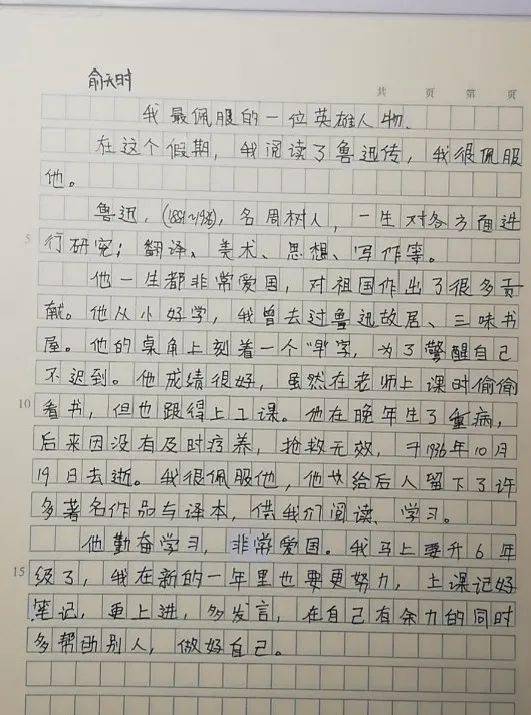 俞天时
共 页 第 页
我最佩服的一位英雄人物.
在这个假期，我阅读了鲁迅传，我很佩服
他。
鲁迅，(1881~1936)，名周树人，一生对各方面进
5 行研究；翻译、美术、思想、写作等。
他一生都非常爱国，对祖国作出了很多贡
献。他从小好学，我曾去过鲁迅故居、三味书
屋。他的桌角上刻着一个"早"字，为了警醒自己
不迟到。他成绩很好，虽然在老师上课时偷偷
10 看书，但也跟得上工课。他在晚年生了重病，
后来因没有及时疗养，抢救无效，于1936年10月
19日去逝。我很佩服他，他给后人留下了许
多著名作品与译本，供我们阅读、学习。
他勤奋学习，非常爱国。我马上要升6年
15 级了，我在新的一年里也要更努力，上课记好
笔记，更上进，多发言，在自己有余力的同时
多帮助别人，做好自己。